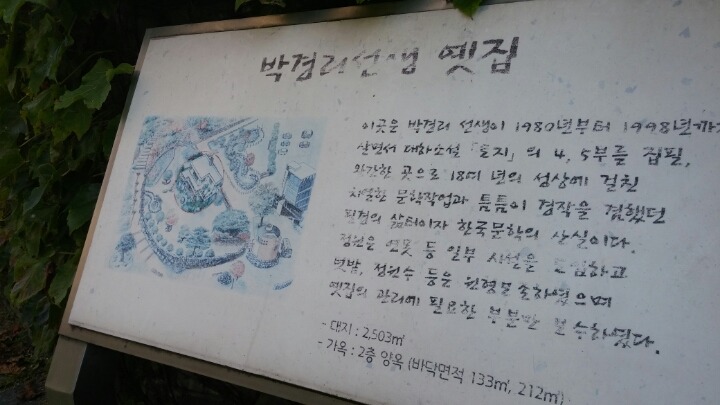 박경리선생 옛집
이곳은 박경리 선생이 1980년부터 1998년까지
살면서 대하소설 「토지」의 4, 5부를 집필,
완간한 곳으로 18여 년의 성상에 걸친
치열한 문학작업과 틈틈이 경작을 겸했던
삶터이자 한국문학의 산실이다.
정원은 연못 등 일부 시설을 도입하고
텃밭, 정원수 등은 원형보존하였으며
옛집의 관리에 필요한 부분만 보수하였다.
- 대지 : 2,503㎡
- 가옥 : 2층 양옥 (바닥면적 133㎡, 212㎡)